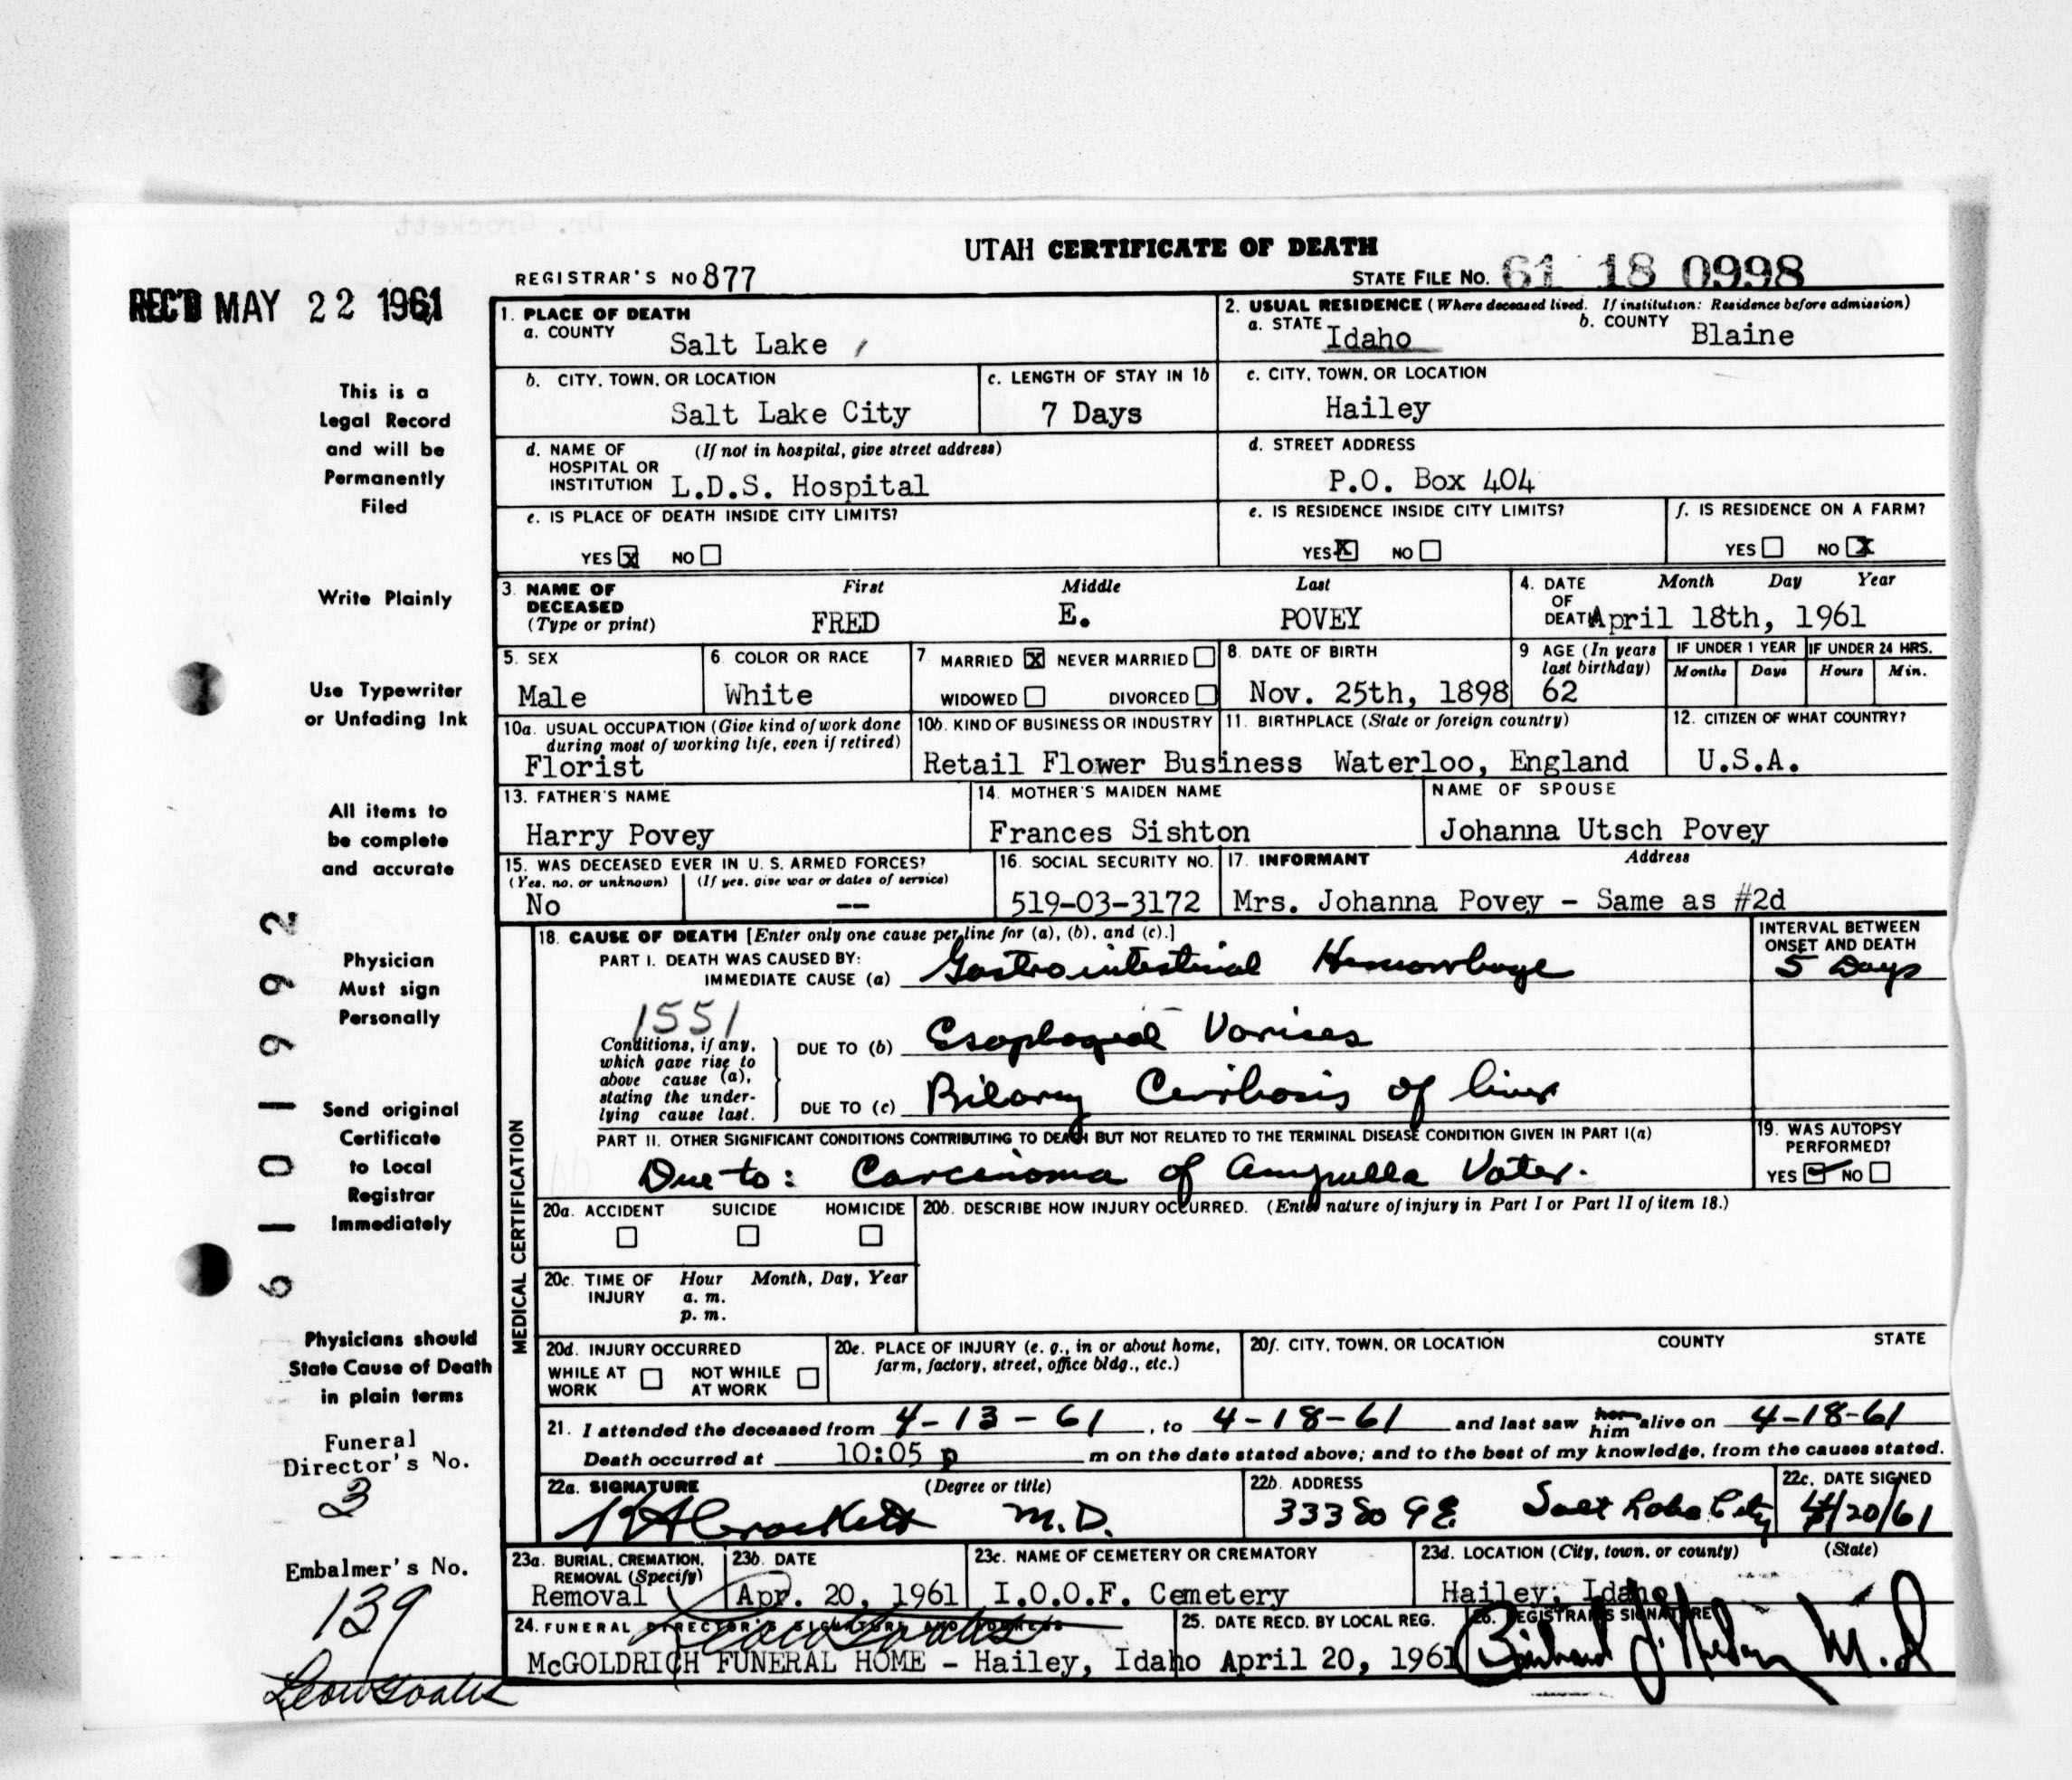 UTAH CERTIFICATE OF DEATH
REGISTRAR'S NO 877
STATE FILE NO. 61 18 0998
REC'D MAY 22 1961
This is a
Legal Record
and will be
Permanently
Filed
Write Plainly
Use Typewriter
or Unfading Ink
All items to
be complete
and accurate
Physician
Must sign
Personally
Send original
Certificate
to Local
Registrar
Immediately
Physicians should
State Cause of Death
in plain terms
Funeral
Director's No.
3
Embalmer's No.
139
61101992
1. PLACE OF DEATH
a. COUNTY Salt Lake
2. USUAL RESIDENCE (Where deceased lived. If institution: Residence before admission)
a. STATE Idaho b. COUNTY Blaine
b. CITY, TOWN, OR LOCATION
Salt Lake City
c. LENGTH OF STAY IN 1b
7 Days
c. CITY, TOWN, OR LOCATION
Hailey
d. NAME OF HOSPITAL OR INSTITUTION (If not in hospital, give street address)
L.D.S. Hospital
d. STREET ADDRESS
P.O. Box 404
e. IS PLACE OF DEATH INSIDE CITY LIMITS?
YES X NO
e. IS RESIDENCE INSIDE CITY LIMITS?
YES X NO
f. IS RESIDENCE ON A FARM?
YES NO X
3. NAME OF DECEASED (Type or print)
First Middle Last
FRED E. POVEY
4. DATE OF DEATH Month Day Year
April 18th, 1961
5. SEX
Male
6. COLOR OR RACE
White
7 MARRIED X NEVER MARRIED
WIDOWED DIVORCED
8. DATE OF BIRTH
Nov. 25th, 1898
9 AGE (In years last birthday)
62
IF UNDER 1 YEAR
Months Days
IF UNDER 24 HRS.
Hours Min.
10a. USUAL OCCUPATION (Give kind of work done during most of working life, even if retired)
Florist
10b. KIND OF BUSINESS OR INDUSTRY
Retail Flower Business
11. BIRTHPLACE (State or foreign country)
Waterloo, England
12. CITIZEN OF WHAT COUNTRY?
U.S.A.
13. FATHER'S NAME
Harry Povey
14. MOTHER'S MAIDEN NAME
Frances Sishton
NAME OF SPOUSE
Johanna Utsch Povey
15. WAS DECEASED EVER IN U. S. ARMED FORCES?
(Yes, no, or unknown) (If yes, give war or dates of service)
No --
16. SOCIAL SECURITY NO.
519-03-3172
17. INFORMANT Address
Mrs. Johanna Povey - Same as #2d
MEDICAL CERTIFICATION
18. CAUSE OF DEATH [Enter only one cause per line for (a), (b), and (c).]
PART I. DEATH WAS CAUSED BY:
IMMEDIATE CAUSE (a) Gastrointestinal Hemorrhage
INTERVAL BETWEEN ONSET AND DEATH
5 Days
1551
Conditions, if any, which gave rise to above cause (a), stating the underlying cause last.
DUE TO (b) Esophageal Varices
DUE TO (c) Biliary Cirrhosis of liver
PART II. OTHER SIGNIFICANT CONDITIONS CONTRIBUTING TO DEATH BUT NOT RELATED TO THE TERMINAL DISEASE CONDITION GIVEN IN PART I(a)
Due to: Carcinoma of ampulla Vater.
19. WAS AUTOPSY PERFORMED?
YES ✓ NO
20a. ACCIDENT SUICIDE HOMICIDE
20b. DESCRIBE HOW INJURY OCCURRED. (Enter nature of injury in Part I or Part II of item 18.)
20c. TIME OF INJURY Hour Month, Day, Year
a. m.
p. m.
20d. INJURY OCCURRED
WHILE AT WORK NOT WHILE AT WORK
20e. PLACE OF INJURY (e. g., in or about home, farm, factory, street, office bldg., etc.)
20f. CITY, TOWN, OR LOCATION COUNTY STATE
21. I attended the deceased from 4-13-61, to 4-18-61 and last saw her him alive on 4-18-61
Death occurred at 10:05 p m on the date stated above; and to the best of my knowledge, from the causes stated.
22a. SIGNATURE (Degree or title)
Crockett M.D.
22b. ADDRESS
333 So 9 E. Salt Lake City
22c. DATE SIGNED
4/20/61
23a. BURIAL, CREMATION, REMOVAL (Specify)
Removal
23b. DATE
Apr. 20, 1961
23c. NAME OF CEMETERY OR CREMATORY
I.O.O.F. Cemetery
23d. LOCATION (City, town, or county) (State)
Hailey, Idaho
24. FUNERAL DIRECTOR'S SIGNATURE AND ADDRESS
McGOLDRICH FUNERAL HOME - Hailey, Idaho
25. DATE RECD. BY LOCAL REG.
April 20, 1961
26. REGISTRAR'S SIGNATURE
M.D